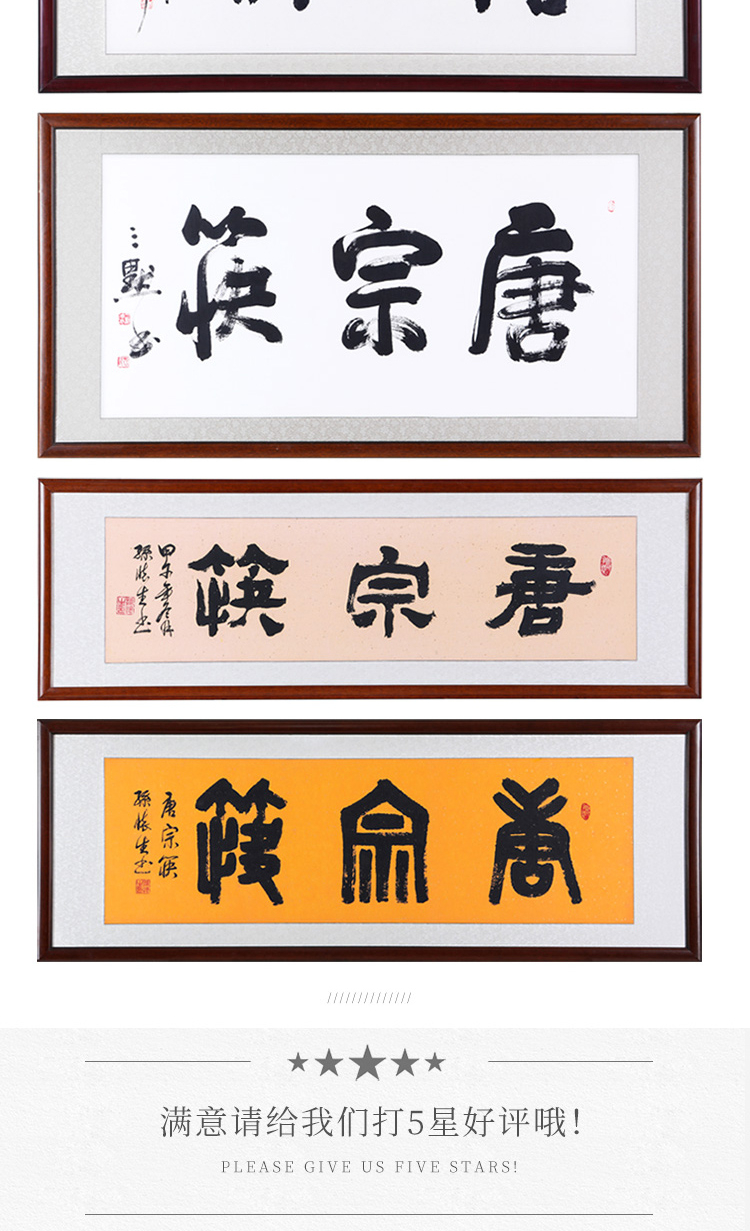 筷宗唐
筷宗唐
三默书
筷宗唐
甲午年
孫懷生书
筷宗唐
唐宗筷
孫懷生书
满意请给我们打5星好评哦!
PLEASE GIVE US FIVE STARS!